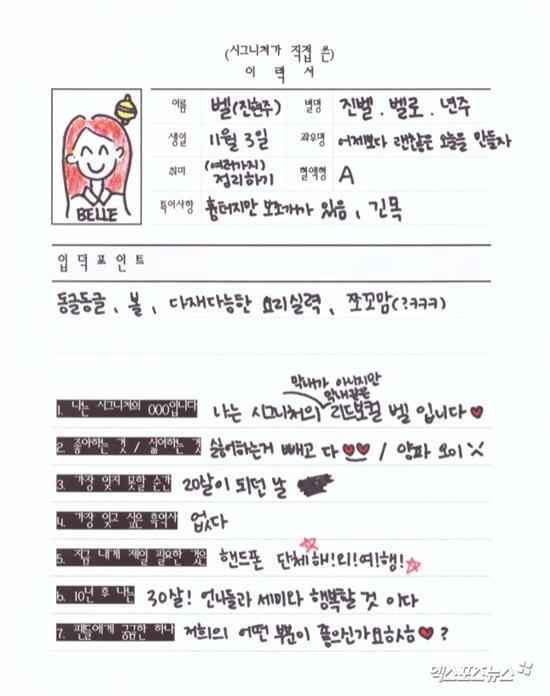 (시그니처가 직접 쓴)
이 력 서
이름 벨(진현주) 별명 진벨 . 벨로 . 년주
생일 11월 3일 좌우명 어제보다 괜찮은 오늘을 만들자
취미 (여러가지) 정리하기 혈액형 A
BELLE
특이사항 흉터지만 보조개가 있음 , 긴목
입 덕 포 인 트
동글동글 , 볼 , 다재다능한 요리실력 , 쪼꼬맘(?ㅋㅋㅋ)
막내가 아니지만
막내같은
1. 나는 시그니처의 OOO입니다 나는 시그니처의 리드보컬 벨 입니다♥
2. 좋아하는 것 / 싫어하는 것 싫어하는거 빼고 다♥♥ / 양파 오이
3. 가장 잊지 못할 순간 20살이 되던 날
4. 가장 잊고 싶은 흑역사 없다
5. 지금 내게 제일 필요한 것은 핸드폰 단체해!외!여!행!☆
6. 10년 후 나는 30살! 언니들과 세미다 행복할 것 이다
7. 팬들에게 궁금한 하나 저희의 어떤 부분이 좋으신가요하하♥?
엑스포츠뉴스